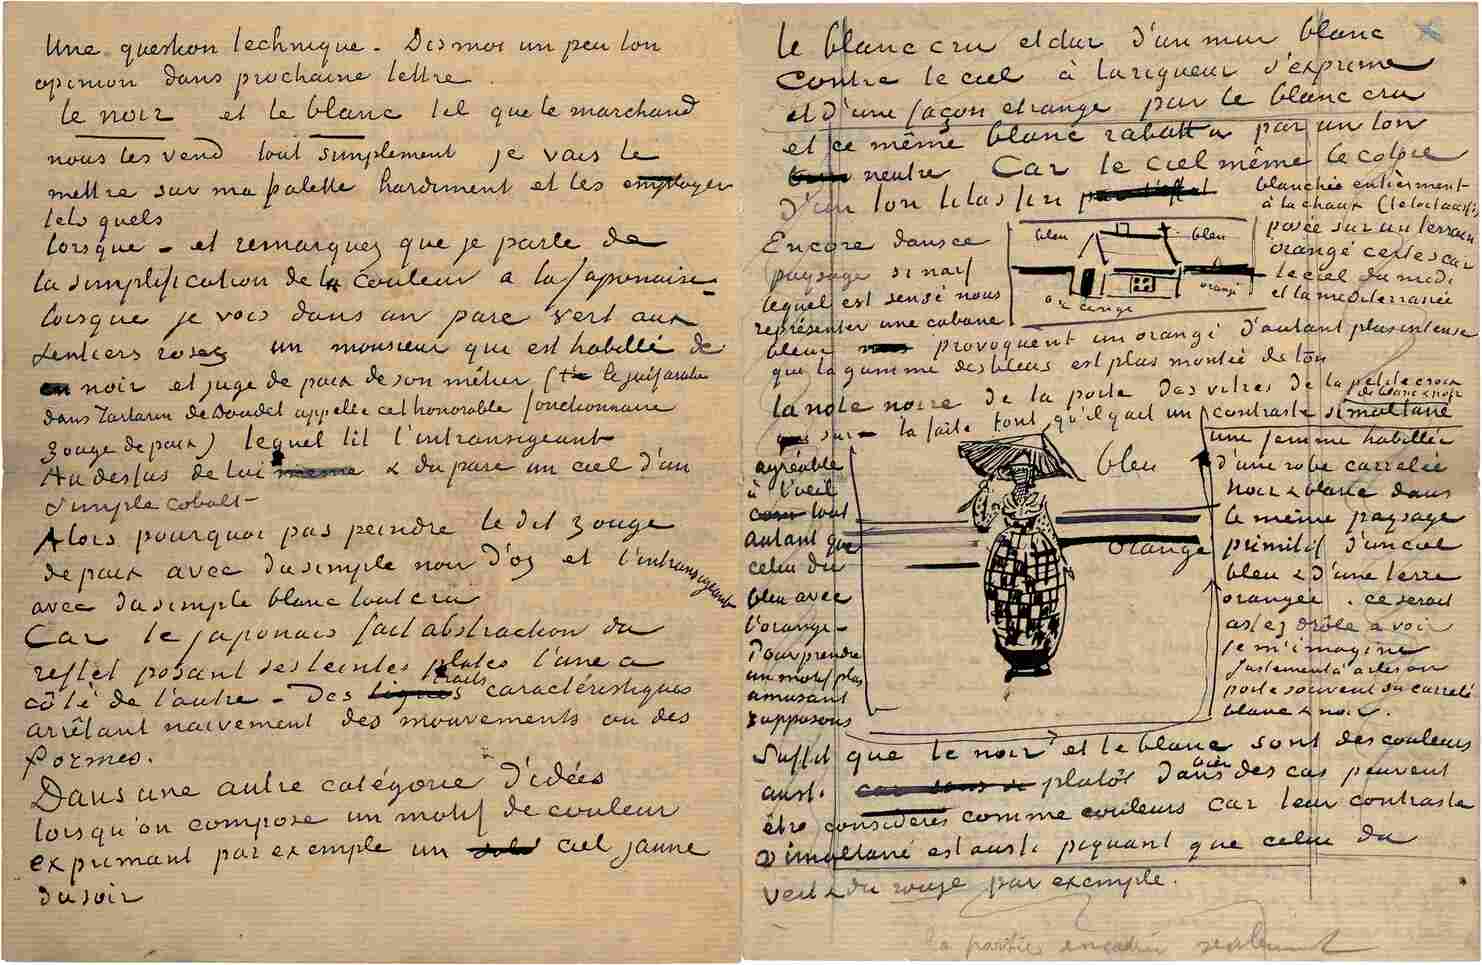 Une question technique. Dis moi un peu ton
opinion dans prochaine lettre.
le noir et le blanc tel que le marchand
nous les vend tout simplement je vais le
mettre sur ma palette hardiment et les employer
tels quels
lorsque – et remarquez que je parle de
la simplification de la couleur a la Japonaise –
lorsque je vois dans un parc vert aux
sentiers roses un monsieur qui est habillé de
noir et juge de paix de son métier (le juif arabe
dans Tartarin de Daudet appelle cet honorable fonctionnaire
zouge de paix) lequel lit l'intransigeant
Au dessus de lui & du parc un ciel d'un
simple cobalt –
Alors pourquoi pas peindre le dit zouge
de paix avec du simple noir d'os et l'intransigeant
avec du simple blanc tout cru
Car le japonais fait abstraction du
reflet posant ses teintes plates l'une a
côté de l'autre – des traits caractéristiques
arrêtant naïvement des mouvements ou des
formes.
Dans une autre catégorie d'idées
lorsqu'on compose un motif de couleur
exprimant par exemple un ciel jaune
du soir
le blanc cru et dur d'un mur blanc
contre le ciel à la rigueur s'exprime
et d'une façon etrange par le blanc cru
et ce même blanc rabattu par un ton
neutre Car le ciel même le colore
d'un ton lilas fin
Encore dans ce
paysage si naïf
lequel est sensé nous
représenter une cabane
blanchie entièrement
à la chaux (le toit aussi)
posée sur un terrain
orangé certes car
le ciel du midi
et la mediterranée
bleu
bleu
orange
orangé
bleue provoquent un orangé d'autant plus intense
que la gamme des bleus est plus montée de ton
la note noire de la porte des vitres de la petite croix
sur la faite font qu'il y ait un contraste simultané
de blanc & noir
agréable
à l'oeil
tout
autant que
celui du
bleu avec
l'orangé –
Pour prendre
un motif plus
amusant
supposons
bleu
orange
une femme habillée
d'une robe carrelée
noir & blanc dans
le même paysage
primitif d'un ciel
bleu & d'une terre
orangée. ce serait
assez drôle a voir
je m'imagine
justement à arles on
porte souvent du carrelé
blanc & noir.
Suffit que le noir et le blanc sont des couleurs
aussi plutôt dans bien des cas peuvent
être considérés comme couleurs car leur contraste
simultané est aussi piquant que celui du
vert & du rouge par exemple.
la partie encadrée seulement